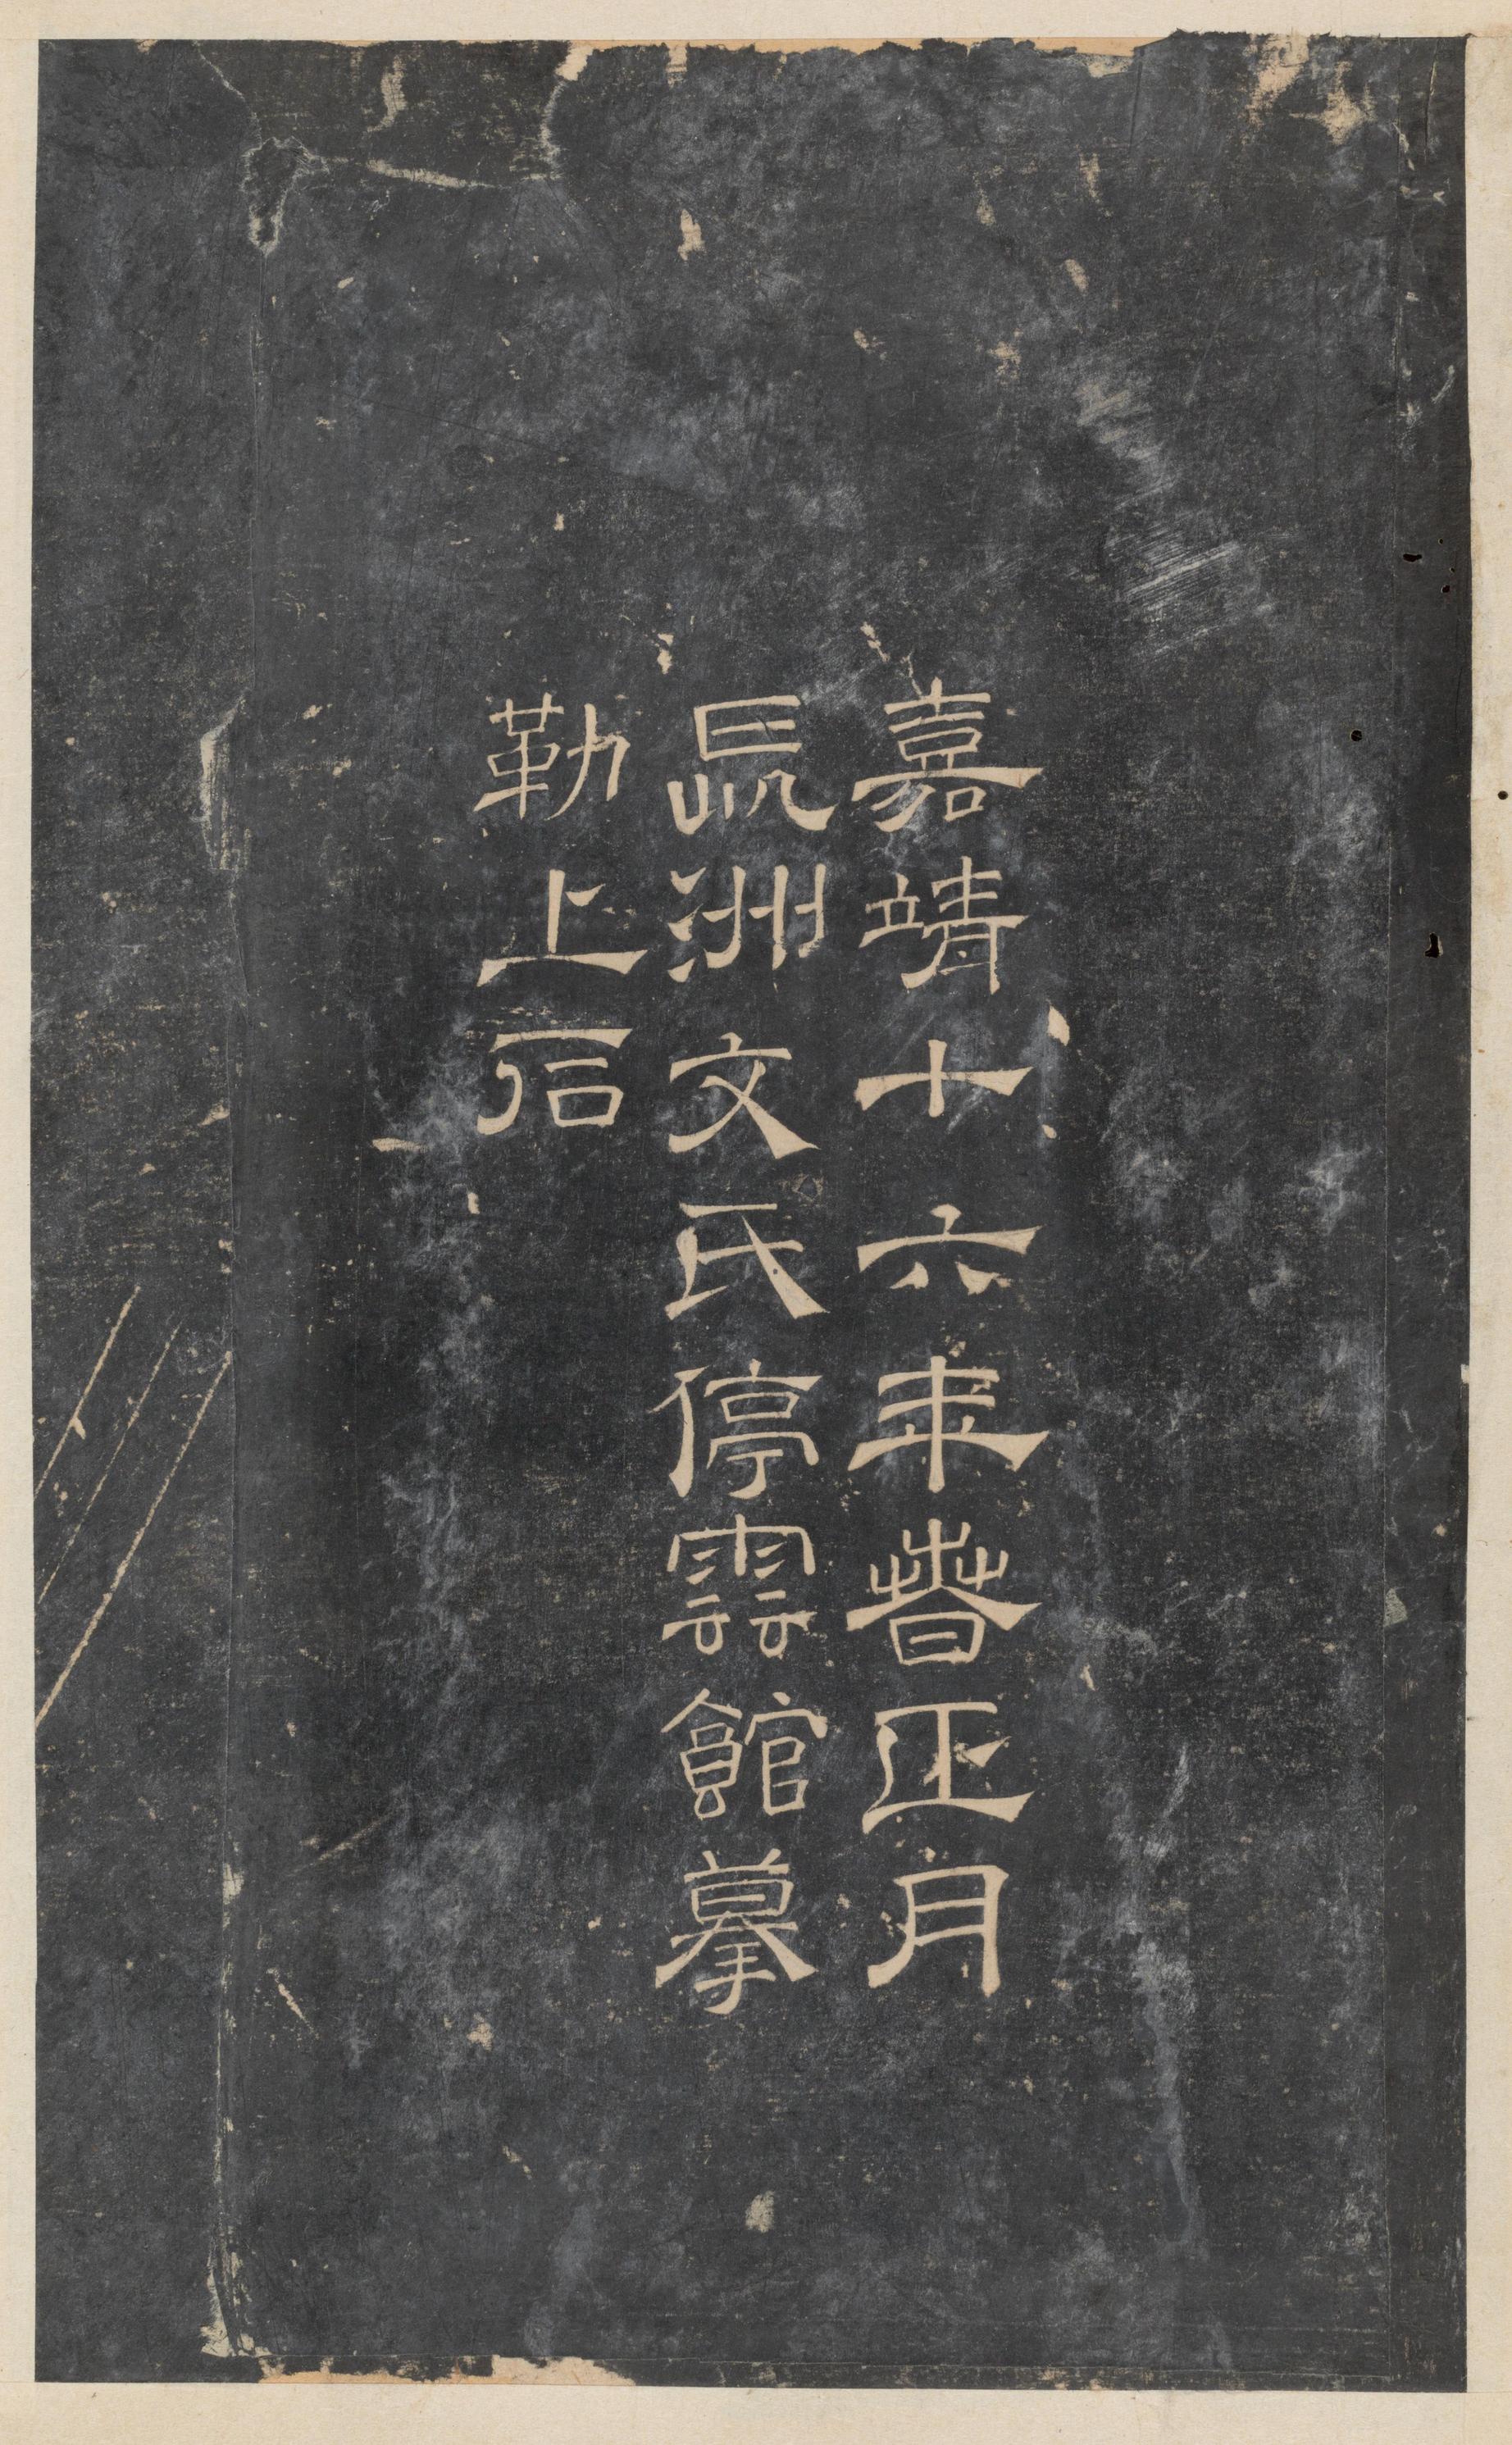 嘉靖十六年春正月
長洲文氏停雲館摹
勒上石